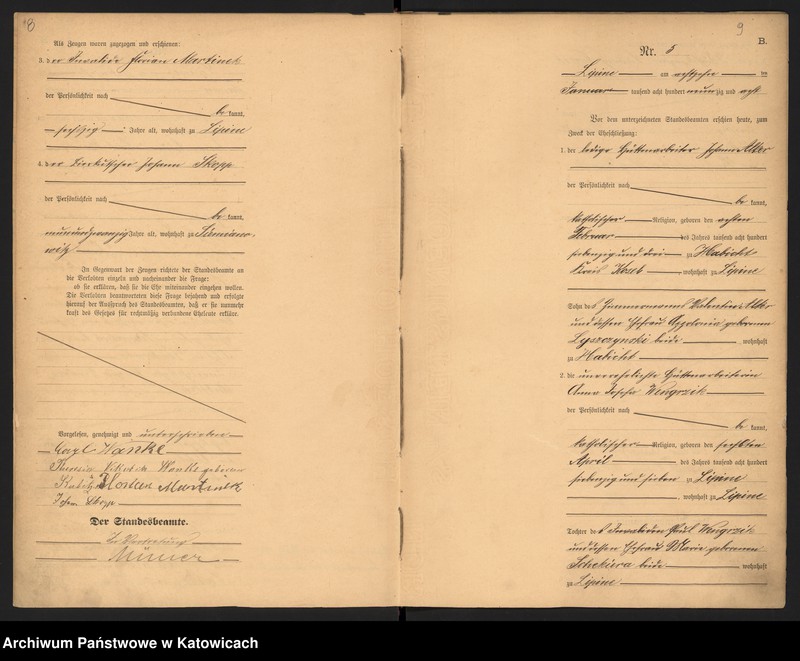 8
Als Zeugen waren zugezogen und erschienen:
3. der Invalide Florian Martinek
der Persönlichkeit nach
be kannt,
sechszig Jahre alt, wohnhaft zu Lipine
4. der Bierkutscher Johann Skopp
der Persönlichkeit nach
be kannt,
neunundzwanzig Jahre alt, wohnhaft zu
witz
In Gegenwart der Zeugen richtete der Standesbeamte an
die Verlobten einzeln und nacheinander die Frage:
ob sie erklären, daß sie die Ehe miteinander eingehen wollen.
Die Verlobten beantworteten diese Frage bejahend und erfolgte
hierauf der Ausspruch des Standesbeamten, daß er sie nunmehr
kraft des Gesetzes für rechtmäßig verbundene Eheleute erkläre.
Vorgelesen, genehmigt und unterschrieben
Carl Hanke
Hanke geborene
Florian Martinek
Johann Skopp
Der Standesbeamte.
In Vertretung
9
B.
Nr. 5
Lipine am achtzehn ten
Januar tausend acht hundert neunzig und acht
Vor dem unterzeichneten Standesbeamten erschien heute, zum
Zweck der Eheschließung:
1. der ledige Hüttenarbeiter Johann
der Persönlichkeit nach
be kannt,
katholischer Religion, geboren den achten
Februar des Jahres tausend acht hundert
siebenzig und drei zu Habicht
Kreis Kosel wohnhaft zu Lipine
Sohn des Zimmermanns Valentin
und dessen Ehefrau Appolonia geborenen
Lyszczynski beide wohnhaft
zu Habicht
2. die unverehelichte Hüttenarbeiterin
Anna Josefa Wengrzik
der Persönlichkeit nach
be kannt,
katholischer Religion, geboren den sechsten
April des Jahres tausend acht hundert
siebenzig und sieben zu Lipine
, wohnhaft zu Lipine
Tochter des Invaliden Paul Wengrzik
und dessen Ehefrau Marie geborenen
beide wohnhaft
zu Lipine
Archiwum Państwowe w Katowicach